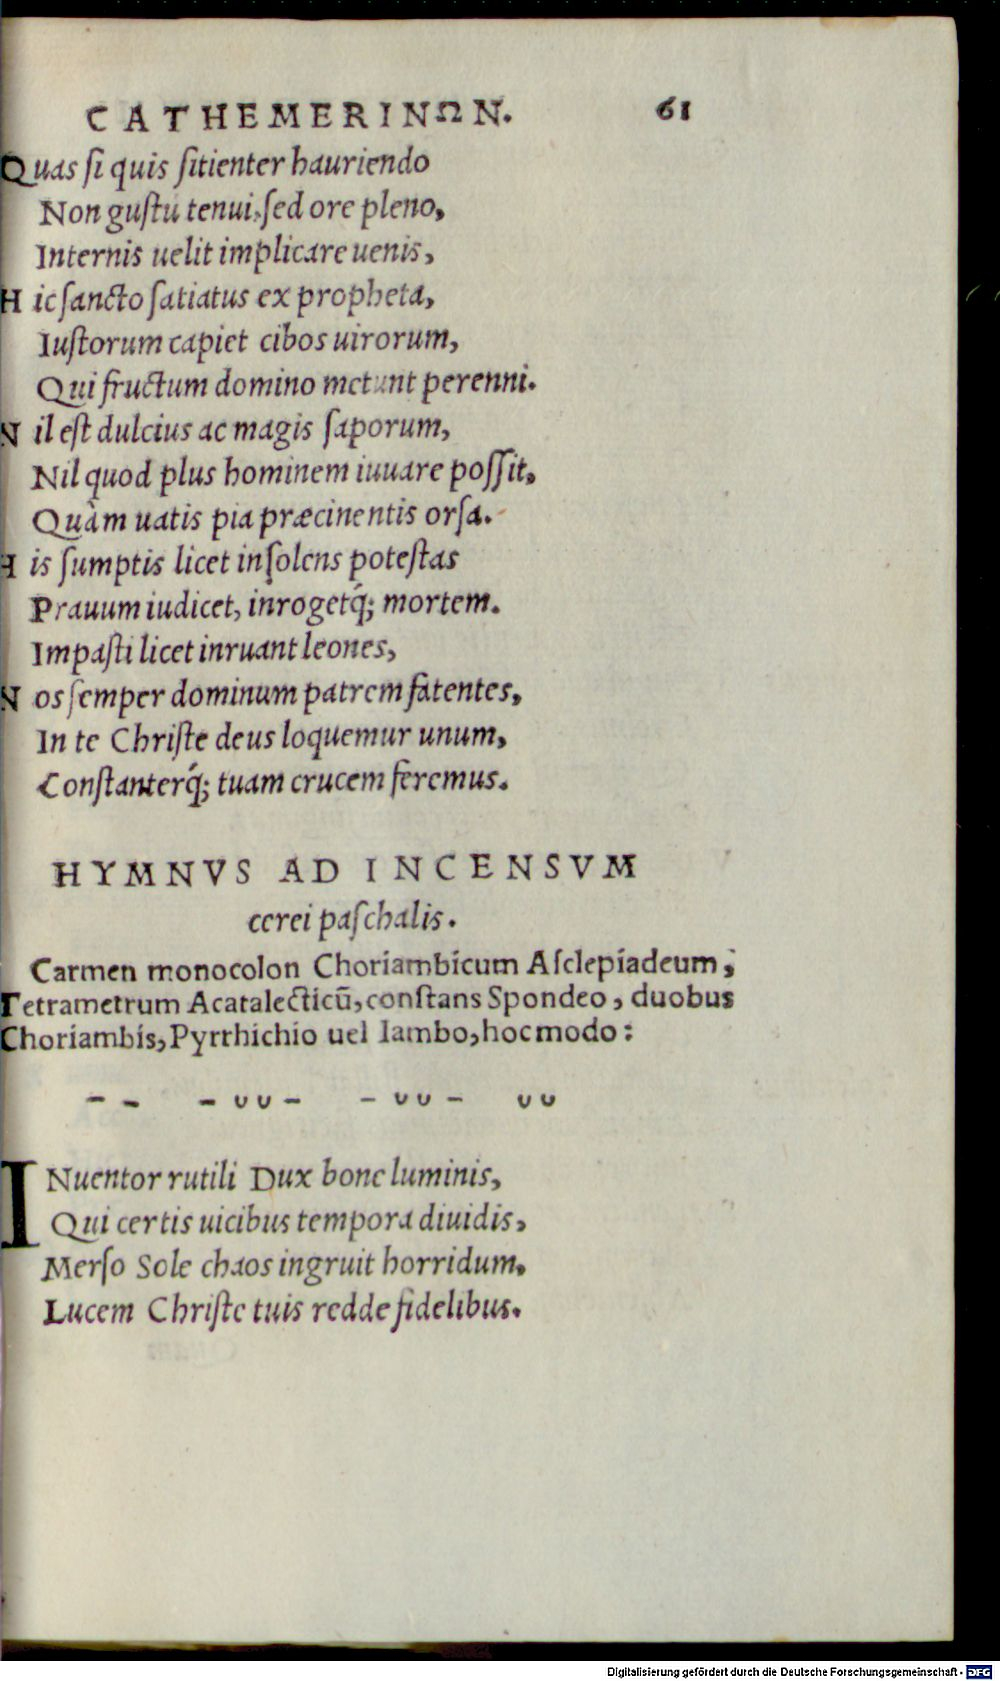 CATHEMERINΩN. 61
Quas ſi quis ſitienter hauriendo
Non guſtu tenui, ſed ore pleno,
Internis uelit implicare uenis,
H ic ſancto ſatiatus ex propheta,
Iuſtorum capiet cibos uirorum,
Qui fructum domino metunt perenni.
N il eſt dulcius ac magis ſaporum,
Nil quod plus hominem iuuare poſſit,
Quàm uatis pia præcinentis orſa.
H is ſumptis licet inſolens poteſtas
Prauum iudicet, inrogetq́; mortem.
Impaſti licet inruant leones,
N os ſemper dominum patrem fatentes,
In te Chriſte deus loquemur unum,
Conſtanterq́; tuam crucem feremus.
HYMNVS AD INCENSVM
cerei paſchalis.
Carmen monocolon Choriambicum Aſclepiadeum,
Tetrametrum Acatalecticū, conſtans Spondeo, duobus
Choriambis, Pyrrhichio uel Iambo, hoc modo:
– – – ∪ ∪ – – ∪ ∪ – ∪ ∪
INuentor rutili Dux bone luminis,
Qui certis uicibus tempora diuidis,
Merſo Sole chaos ingruit horridum,
Lucem Chriſte tuis redde fidelibus.
Digitalisierung gefördert durch die Deutsche Forschungsgemeinschaft - DFG